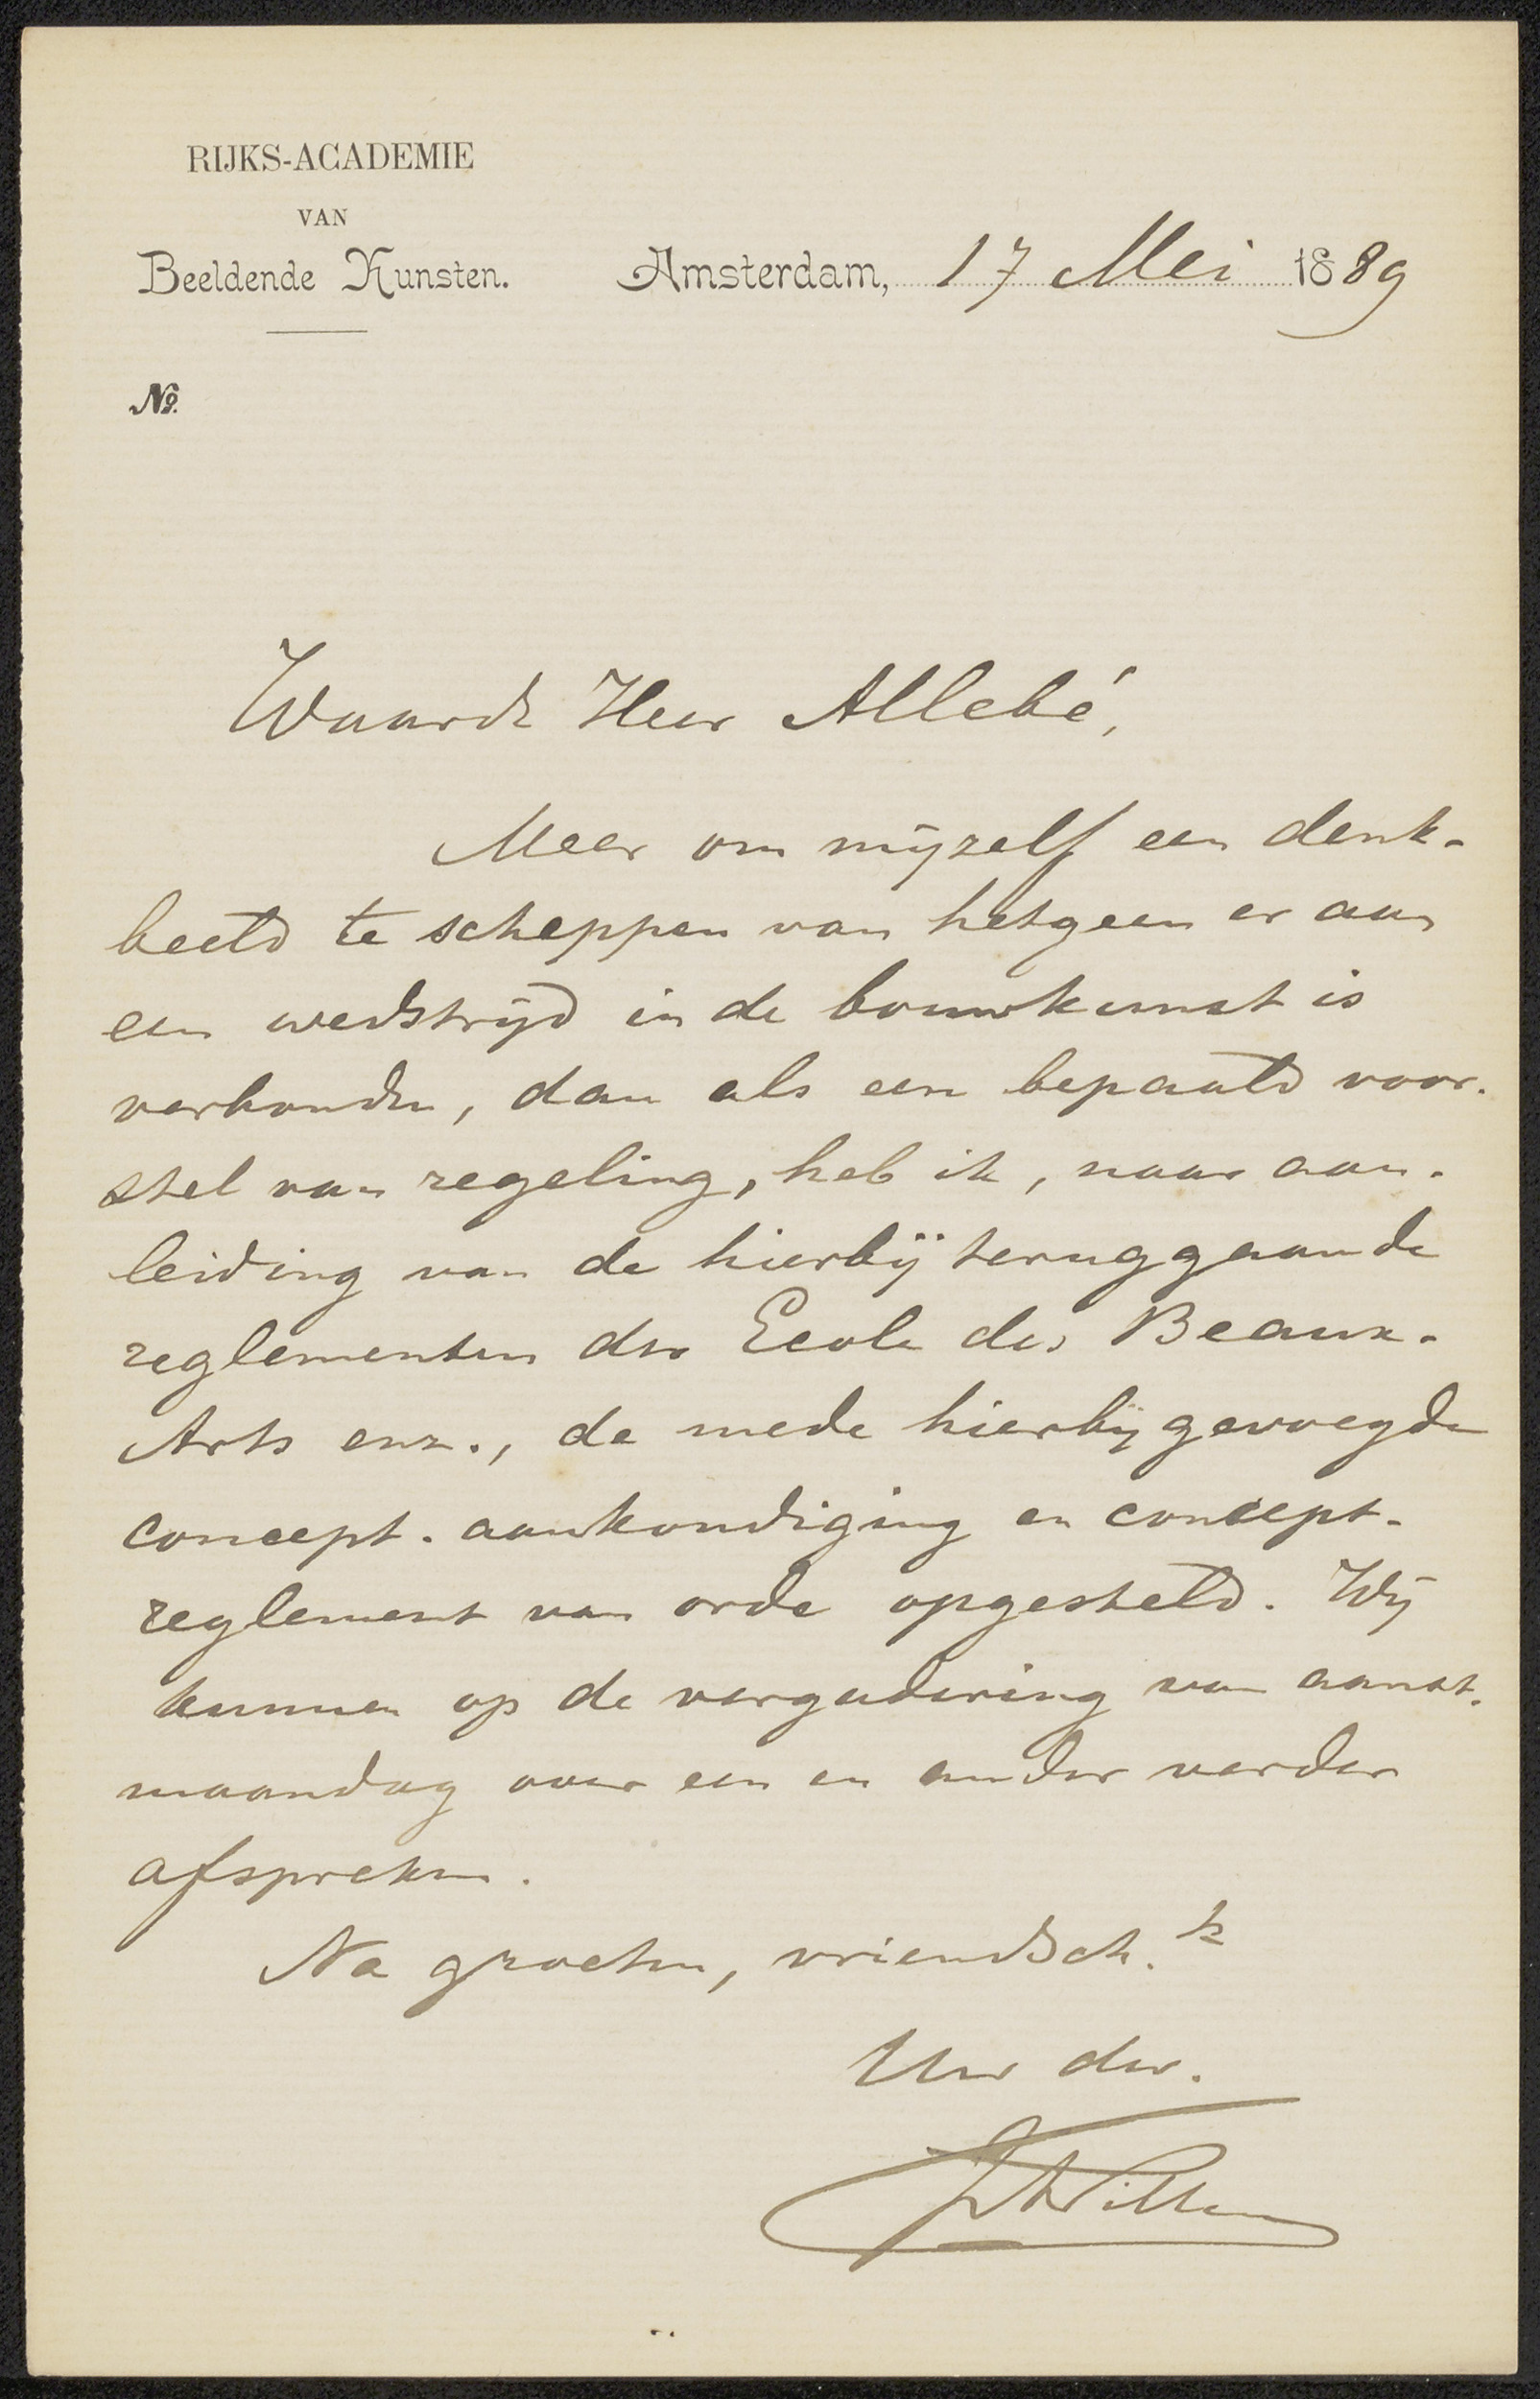 RIJKS-ACADEMIE
VAN
Beeldende Kunsten.
Amsterdam, 17 Mei 1889
No.
Waarde Heer Allebé,
Meer om mijzelf een denk-
beeld te scheppen van hetgeen er aan
een wedstrijd in de bouwkunst is
verbonden, dan als een bepaald voor-
stel van regeling, heb ik, naar aan-
leiding van de hierbij teruggaande
reglementen der Ecole des Beaux-
Arts enz., de mede hierbij gevoegde
concept-aankondiging en concept-
reglement van orde opgesteld. Wij
kunnen op de vergadering van aanst.
maandag over een en ander verder
afspreken.
Na groeten, vriendsch.k
Uw dw.